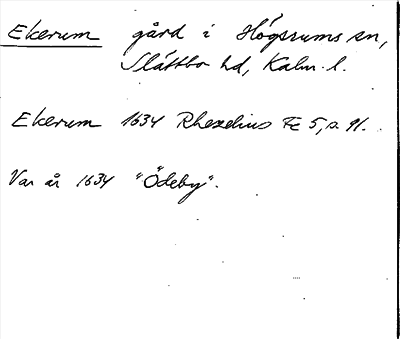 Ekerum gård i Högsrums sn,
Slättbo hd, Kalm. l.
Ekerum 1634 Rhezelius Fc 5, s. 91.
Var år 1634 "Ödeby".